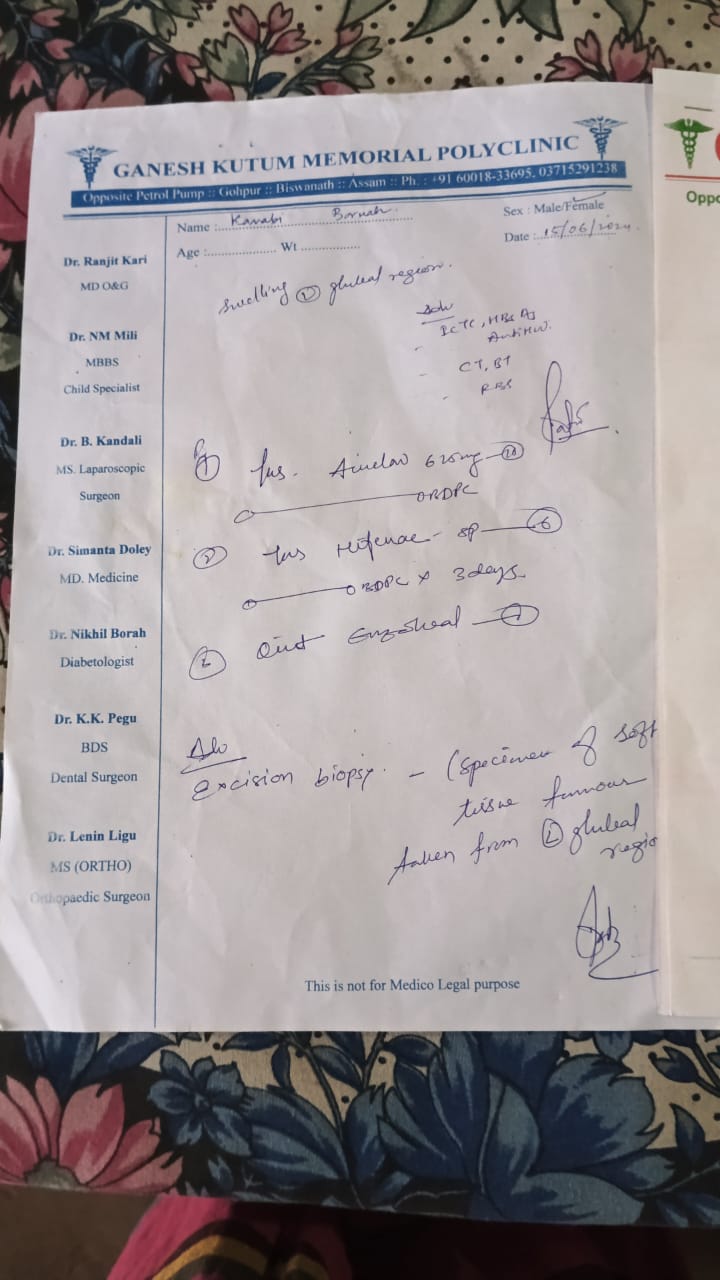 GANESH KUTUM MEMORIAL POLYCLINIC
Opposite Petrol Pump :: Gohpur :: Biswanath :: Assam :: Ph. : +91 60018-33695, 03715291238
Name : Boruah
Sex : Male/Female
Age : Wt
Date : 15/06/2024
Dr. Ranjit Kari
MD O&G
Dr. NM Mili
MBBS
Child Specialist
Dr. B. Kandali
MS. Laparoscopic
Surgeon
Dr. Simanta Doley
MD. Medicine
Dr. Nikhil Borah
Diabetologist
Dr. K.K. Pegu
BDS
Dental Surgeon
Dr. Lenin Ligu
MS (ORTHO)
Orthopaedic Surgeon
swelling L gluteal region.
Adv
ICTC, HBsAg
CT, BT
RBS
625mg 10
BDPC
SP 6
BDPC x 3 days
Oint
Adv
Excision biopsy. - (specimen of soft
tissue tumour
taken from L gluteal
regio
This is not for Medico Legal purpose
Oppo